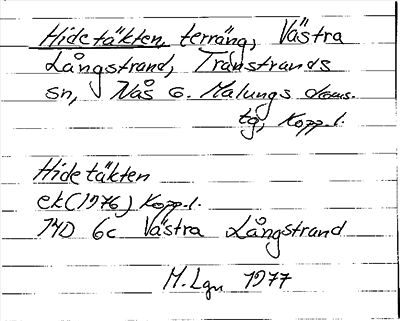 Hidetäkten, terräng, Västra
Långstrand, Transtrands
sn, Nås o. Malungs doms.
tg, Kopp.l.
Hidetäkten
ek(1976) Kopp.l.
14D 6c Västra Långstrand
M. Lgn 1977